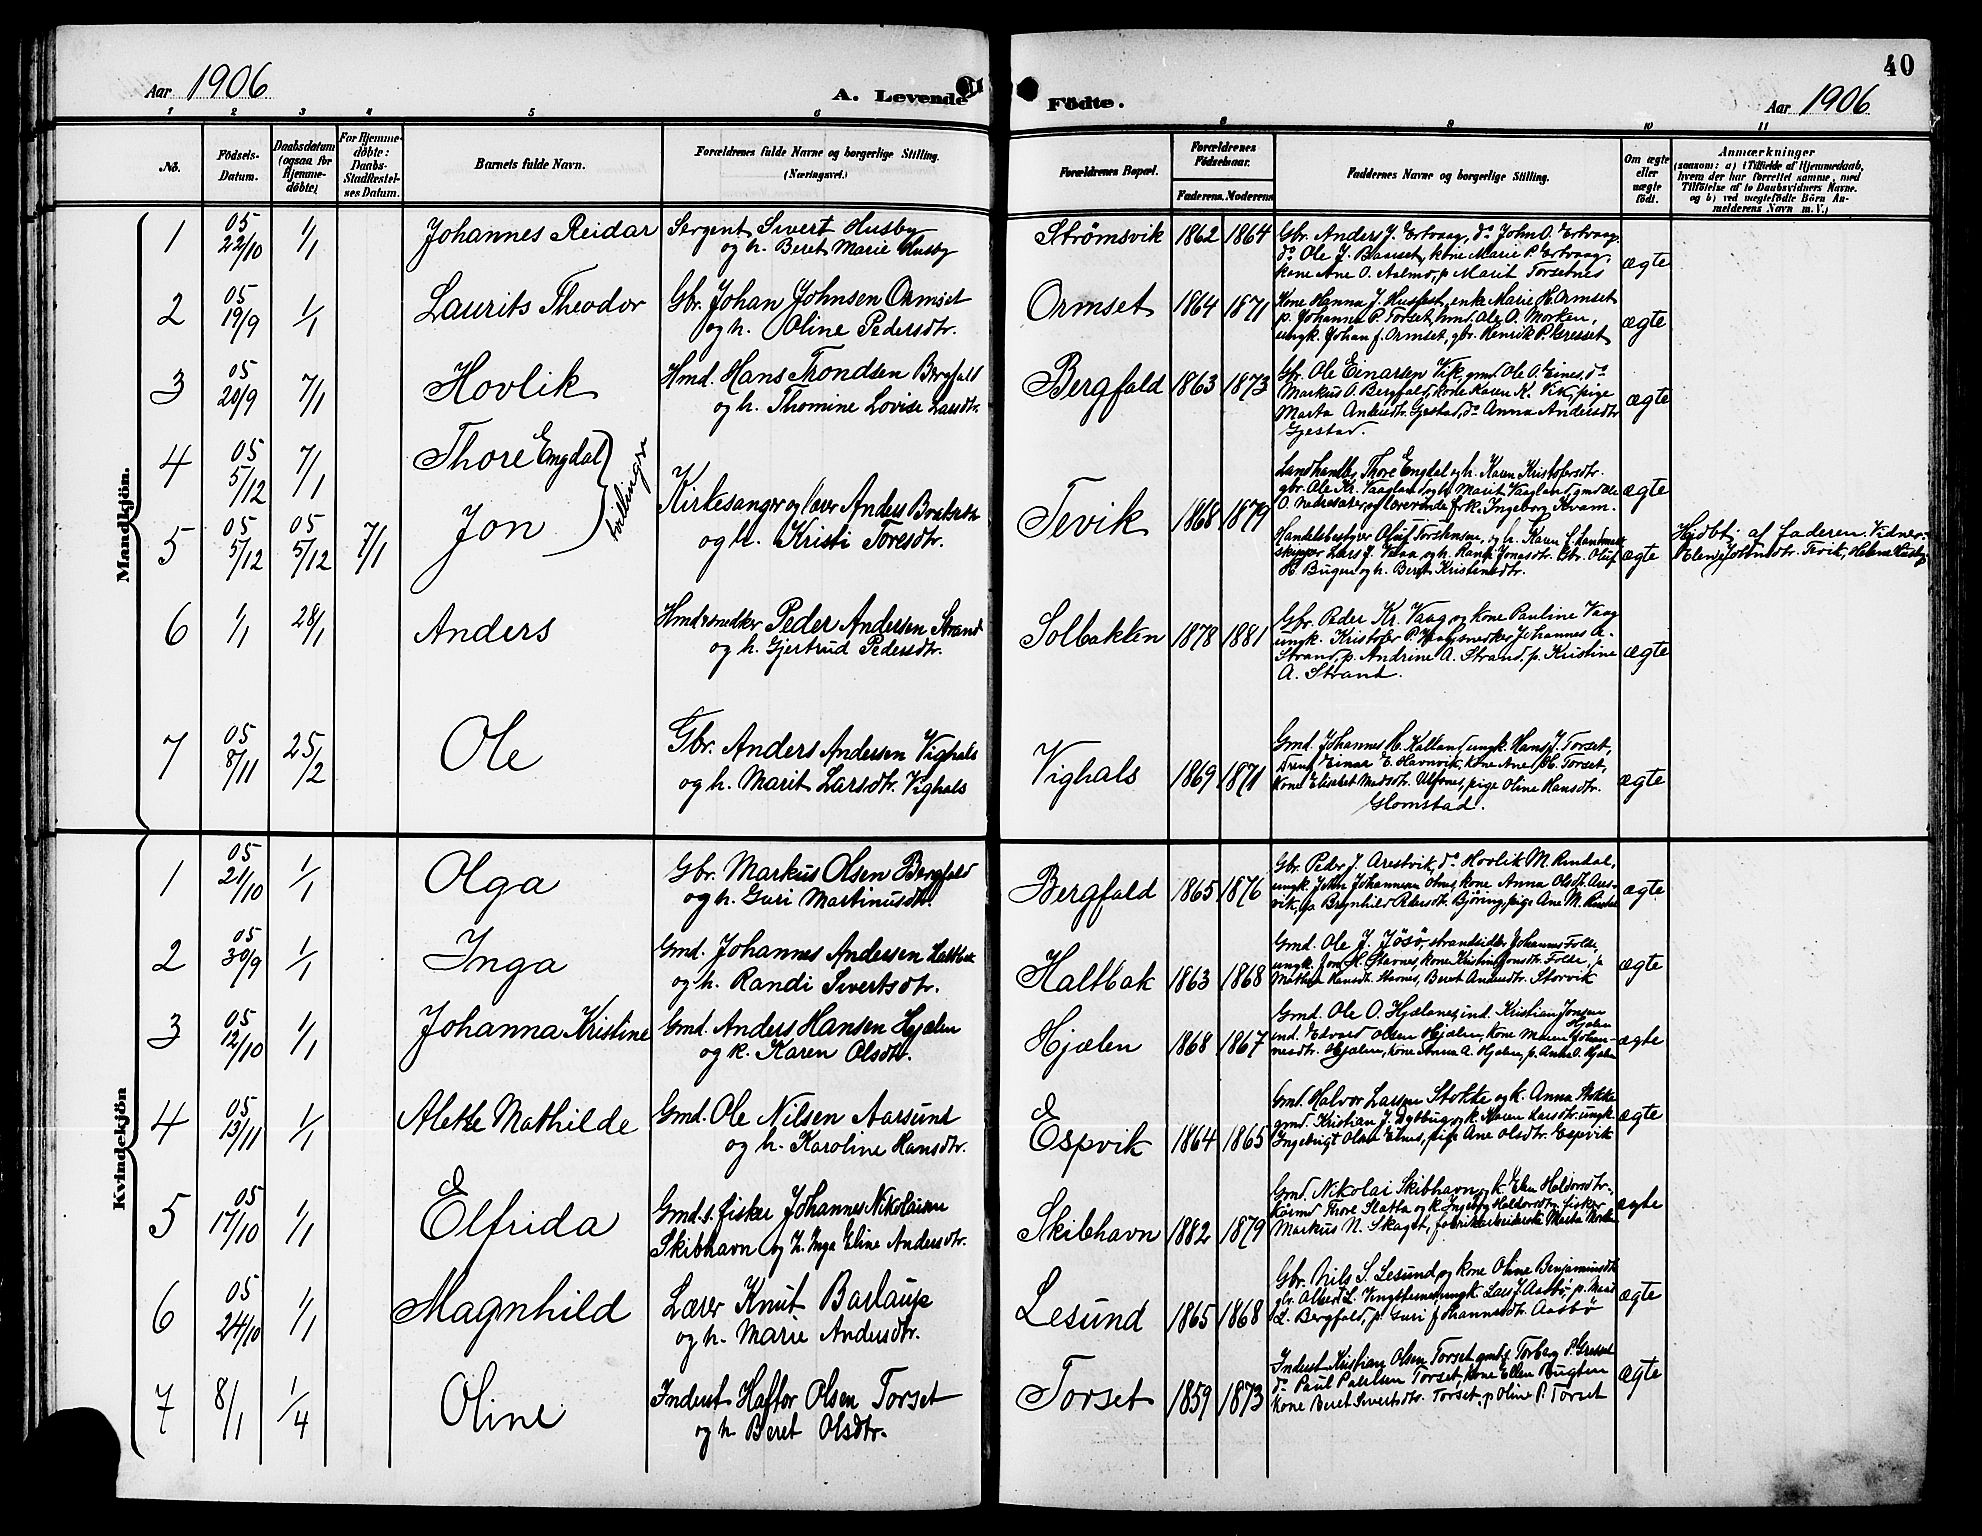 Aar 1906
A. Levende Födte.
40
Aar 1906
1 2 3 4 5 6 8 9 10 11
No.
Födsels-Datum.
Daabsdatum (ogsaa for Hjemmedöbte)
For Hjemmedöbte: Daabs-Stadfæstelses Datum.
Barnets fulde Navn.
Forældrenes fulde Navne og borgerlige Stilling. (Næringsvei.)
Forældrenes Bopæl.
Forældrenes Födselsaar.
Faderens. Moderens.
Faddernes Navne og borgerlige Stilling.
Om ægte eller uægte födt.
Anmærkninger
(saasom: a) i Tilfælde af Hjemmedaab, hvem der har forrettet samme, med Tilföielse af to Daabsvidners Navne, og b) ved uægtefödte Börn Anmelderens Navn m. V.)
Mandkjön.
1 05 22/10 1/1 Johannes Reidar
Sergent Sivert Husby
og h. Beret Marie Husby
Strømsvik 1862 1864
Gbr. Anders J. Ertvaag, do John O. Ertvaag,
do Ole J. Baasset, kone Marie P. Ertvaag,
kone Ane O. Aalmo, p. Marit Torsetnes
ægte
2 05 19/9 1/1 Laurits Theodor
Gbr. Johan Johnsen Ormset
og h. Oline Pedersdtr.
Ormset 1864 1871
Kone Hanna J. Husfast, enke Marie H. Ormset
p. Johanna P. Torset, hmd. Ole O. Morken,
ungk. Johan J. Ormset, gbr. Henrik P. Gresset
ægte
3 05 20/9 7/1 Hovlik
Hmd. Hans Trondsen Bergfald
og h. Thomine Lovise Larsdtr.
Bergfald 1863 1873
Gbr. Ole Einarsen Vik, gmd. Ole O. Eines, do
Markus O. Bergfald, kone Karen K. Vik, pige
Marta Andersdtr. Gjestad, do Anna Andersdtr
Gjestad.
ægte
4 05 5/12 7/1 Thore Engdal
5 05 5/12 05 5/12 7/1 Jon
tvillinger
Kirkesanger og lærer Anders
og h. Kristi Toresdtr.
Tevik 1868 1879
Landhandler Thore Engdal og h. Karen Kristofersdtr.
gbr. Ole Kr. Vaagland og h. Marit Vaagland, gmd. Ole
O. Nedresæter, og lærerinde frk. Ingeborg Kvam.
ægte
Handelsbestyrer Oluf Torstensen, og h. Karen
skipper Lars J. Vaag og h. Randi Jonasdtr. Gbr. Oluf
H. Bugen og h. Beret Kristensdtr.
ægte
Hjdbt. af faderen. Vidner:
Elen Johnsdtr. Tevik, Helene Husby
6 1/1 28/1 Anders
Hmd. snedker Peder Andersen Strand
og h. Gjertrud Pedersdtr.
Solbakken 1878 1881
Gbr. Peder Kr. Vaag og kone Pauline Vaag
ungk. Kristofer P. Vaag, snedker Johannes A.
Strand, p. Andrine A. Strand, p. Kristine
A. Strand.
ægte
7 05 8/11 25/2 Ole
Gbr. Anders Andersen Vighals
og h. Marit Larsdtr. Vighals
Vighals 1869 1871
Gmd. Johannes H. Kalland, ungk. Hans J. Torset,
Dreng Einar E. Havnvik, kone Ane H. Torset,
kone Elisabet Madsdtr. Ulfsnes, pige Oline Hansdtr.
Glomstad.
ægte
Kvindekjön
1 05 21/10 1/1 Olga
Gbr. Markus Olsen Bergfald
og h. Guri Martinusdtr.
Bergfald 1865 1876
Gbr. Peder J. Arestvik, do Hovlik M. Rindal,
ungk. John Johannesen kone Anna Olsdtr. Arestvik,
pa Brynhild Pedersdtr. Bjøring, pige Ane M. Rindal
ægte.
2 05 30/9 1/1 Inga
Gmd. Johannes Andersen Haltbak
og h. Randi Sivertsdtr.
Haltbak 1863 1868
Gmd. Ole J. Jøsø, strandsidder Johannes Folde,
ungk. Jon H. Stavnes, kone Kristine Jonsdtr. Folde, p.
Mathea Hansdtr. Stavnes, Beret Andersdtr Storvik
ægte
3 05 12/10 1/1 Johanna Kristine
Gmd. Anders Hansen Hjælen
og k. Karen Olsdtr.
Hjælen 1868 1867
Gmd. Ole O. Hjælnes, ind. Kristian Jonsen
Hjælen
ind. Edvard Olsen Hjælen, kone Maren Johannesdtr.
Hjælen, kone Anna A. Hjælen, p. Anna O. Hjælen
ægte
4 05 13/11 1/1 Alette Mathilde
Gmd. Ole Nilsen Aarsund
og h. Karoline Hansdtr.
Espvik 1864 1865
Gmd. Halvor Larsen Stokke og k. Anna Stokke
gmd. Kristian J. og k. Karen Larsdtr. ungk.
Ingebrigt Olsen pige Ane Olsdtr. Espvik
ægte
5 05 17/10 1/1 Elfrida
Gmd. s. fisker Johannes Nikolaisen
Skibhavn og h. Inga Eline Andersdtr.
Skibhavn 1882 1879
Gmd. Nikolai Skibhavn og k. Elen Haldorsdtr.,
Thore Slatta og k. Ingeborg Haldorsdtr., fisker
Markus N. Skaget, fabrikarbeiderske Marta
ægte
6 05 24/10 1/1 Magnhild
Lærer Knut Barlaup
og h. Marie Andersdtr.
Lesund 1865 1868
Gbr. Nils S. Lesund og kone Oline Benjaminsdtr
gbr. Albert L. Vingsternes, ungk. Lars J. Aasbø, p. Marit
L. Bergfald, p. Guri Johannesdtr. Aasbø
ægte
7 8/1 1/4 Oline
Inderst Haftor Olsen Torset
og h. Beret Olsdtr.
Torset 1859 1873
Inderst Kristian Olsen Torset, gmds. Torberg P. Gresset
do Paul Paulsen Torset, kone Ellen Bugten
kone Beret Sivertsdtr. Torset, p. Oline P. Torset
ægte